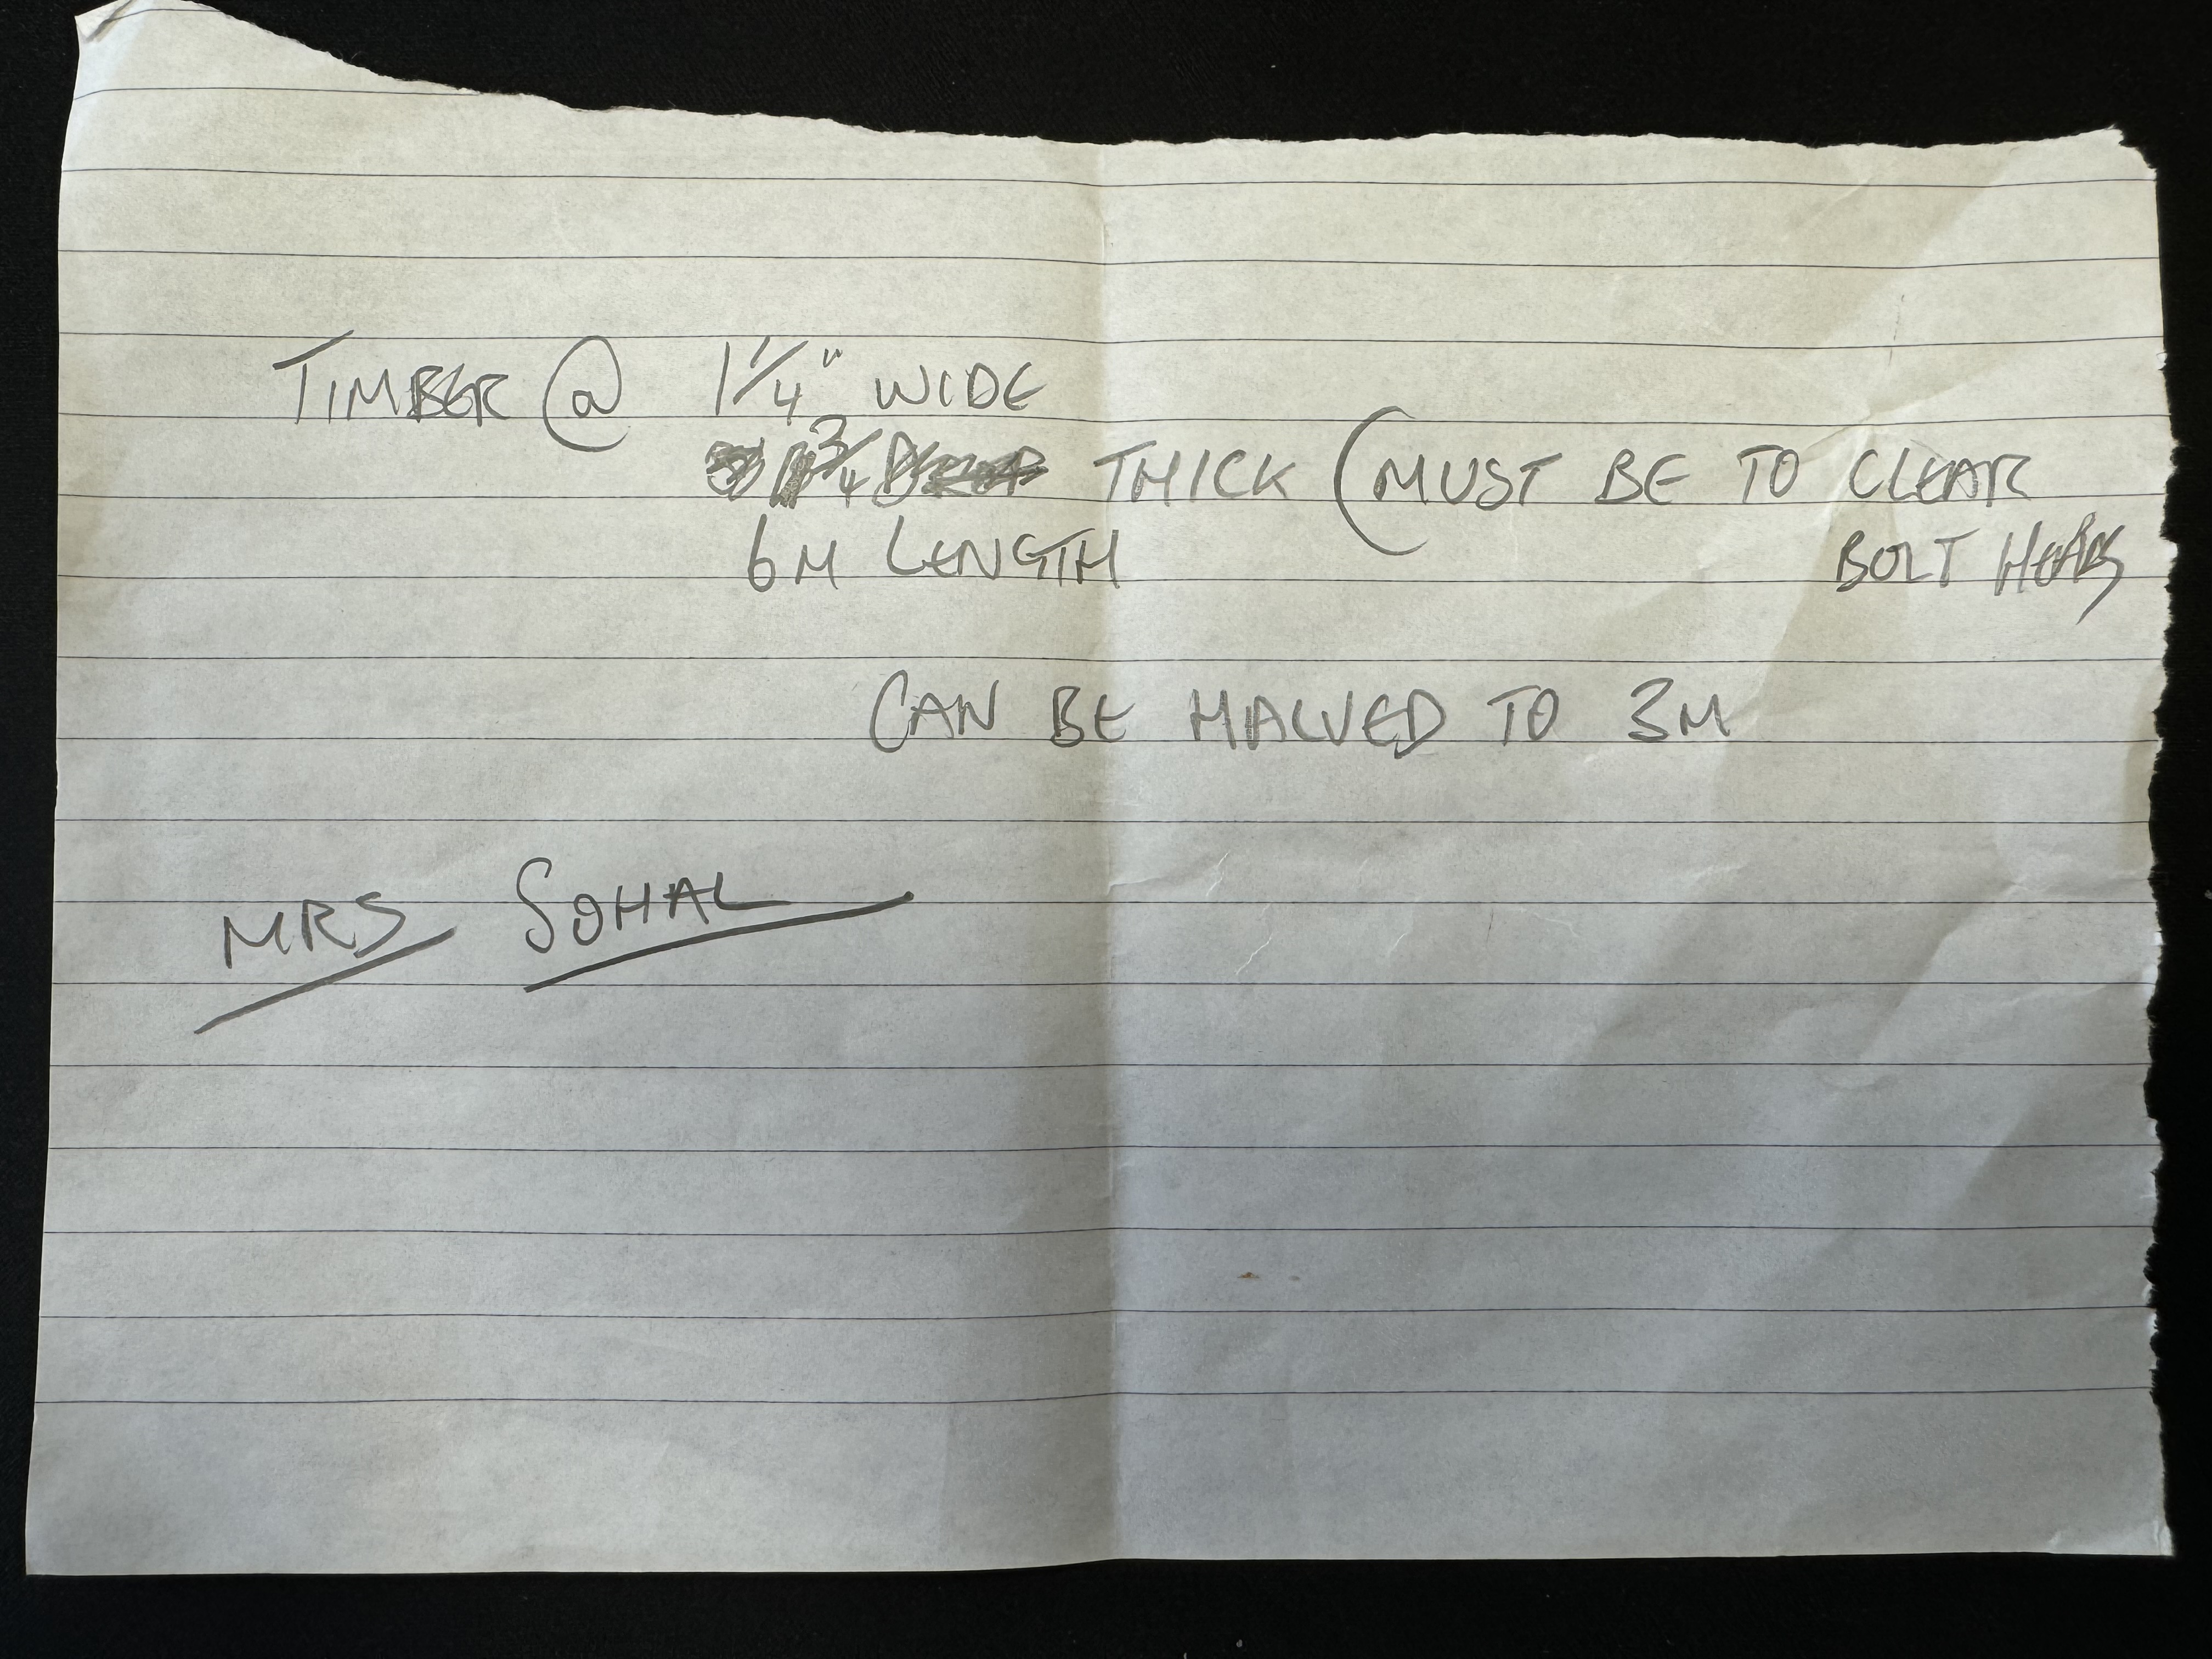 TIMBER @ 1 1/4" WIDE
3/4 THICK (MUST BE TO CLEAR
6M LENGTH BOLT HEADS
CAN BE HALVED TO 3M
MRS SOHAL